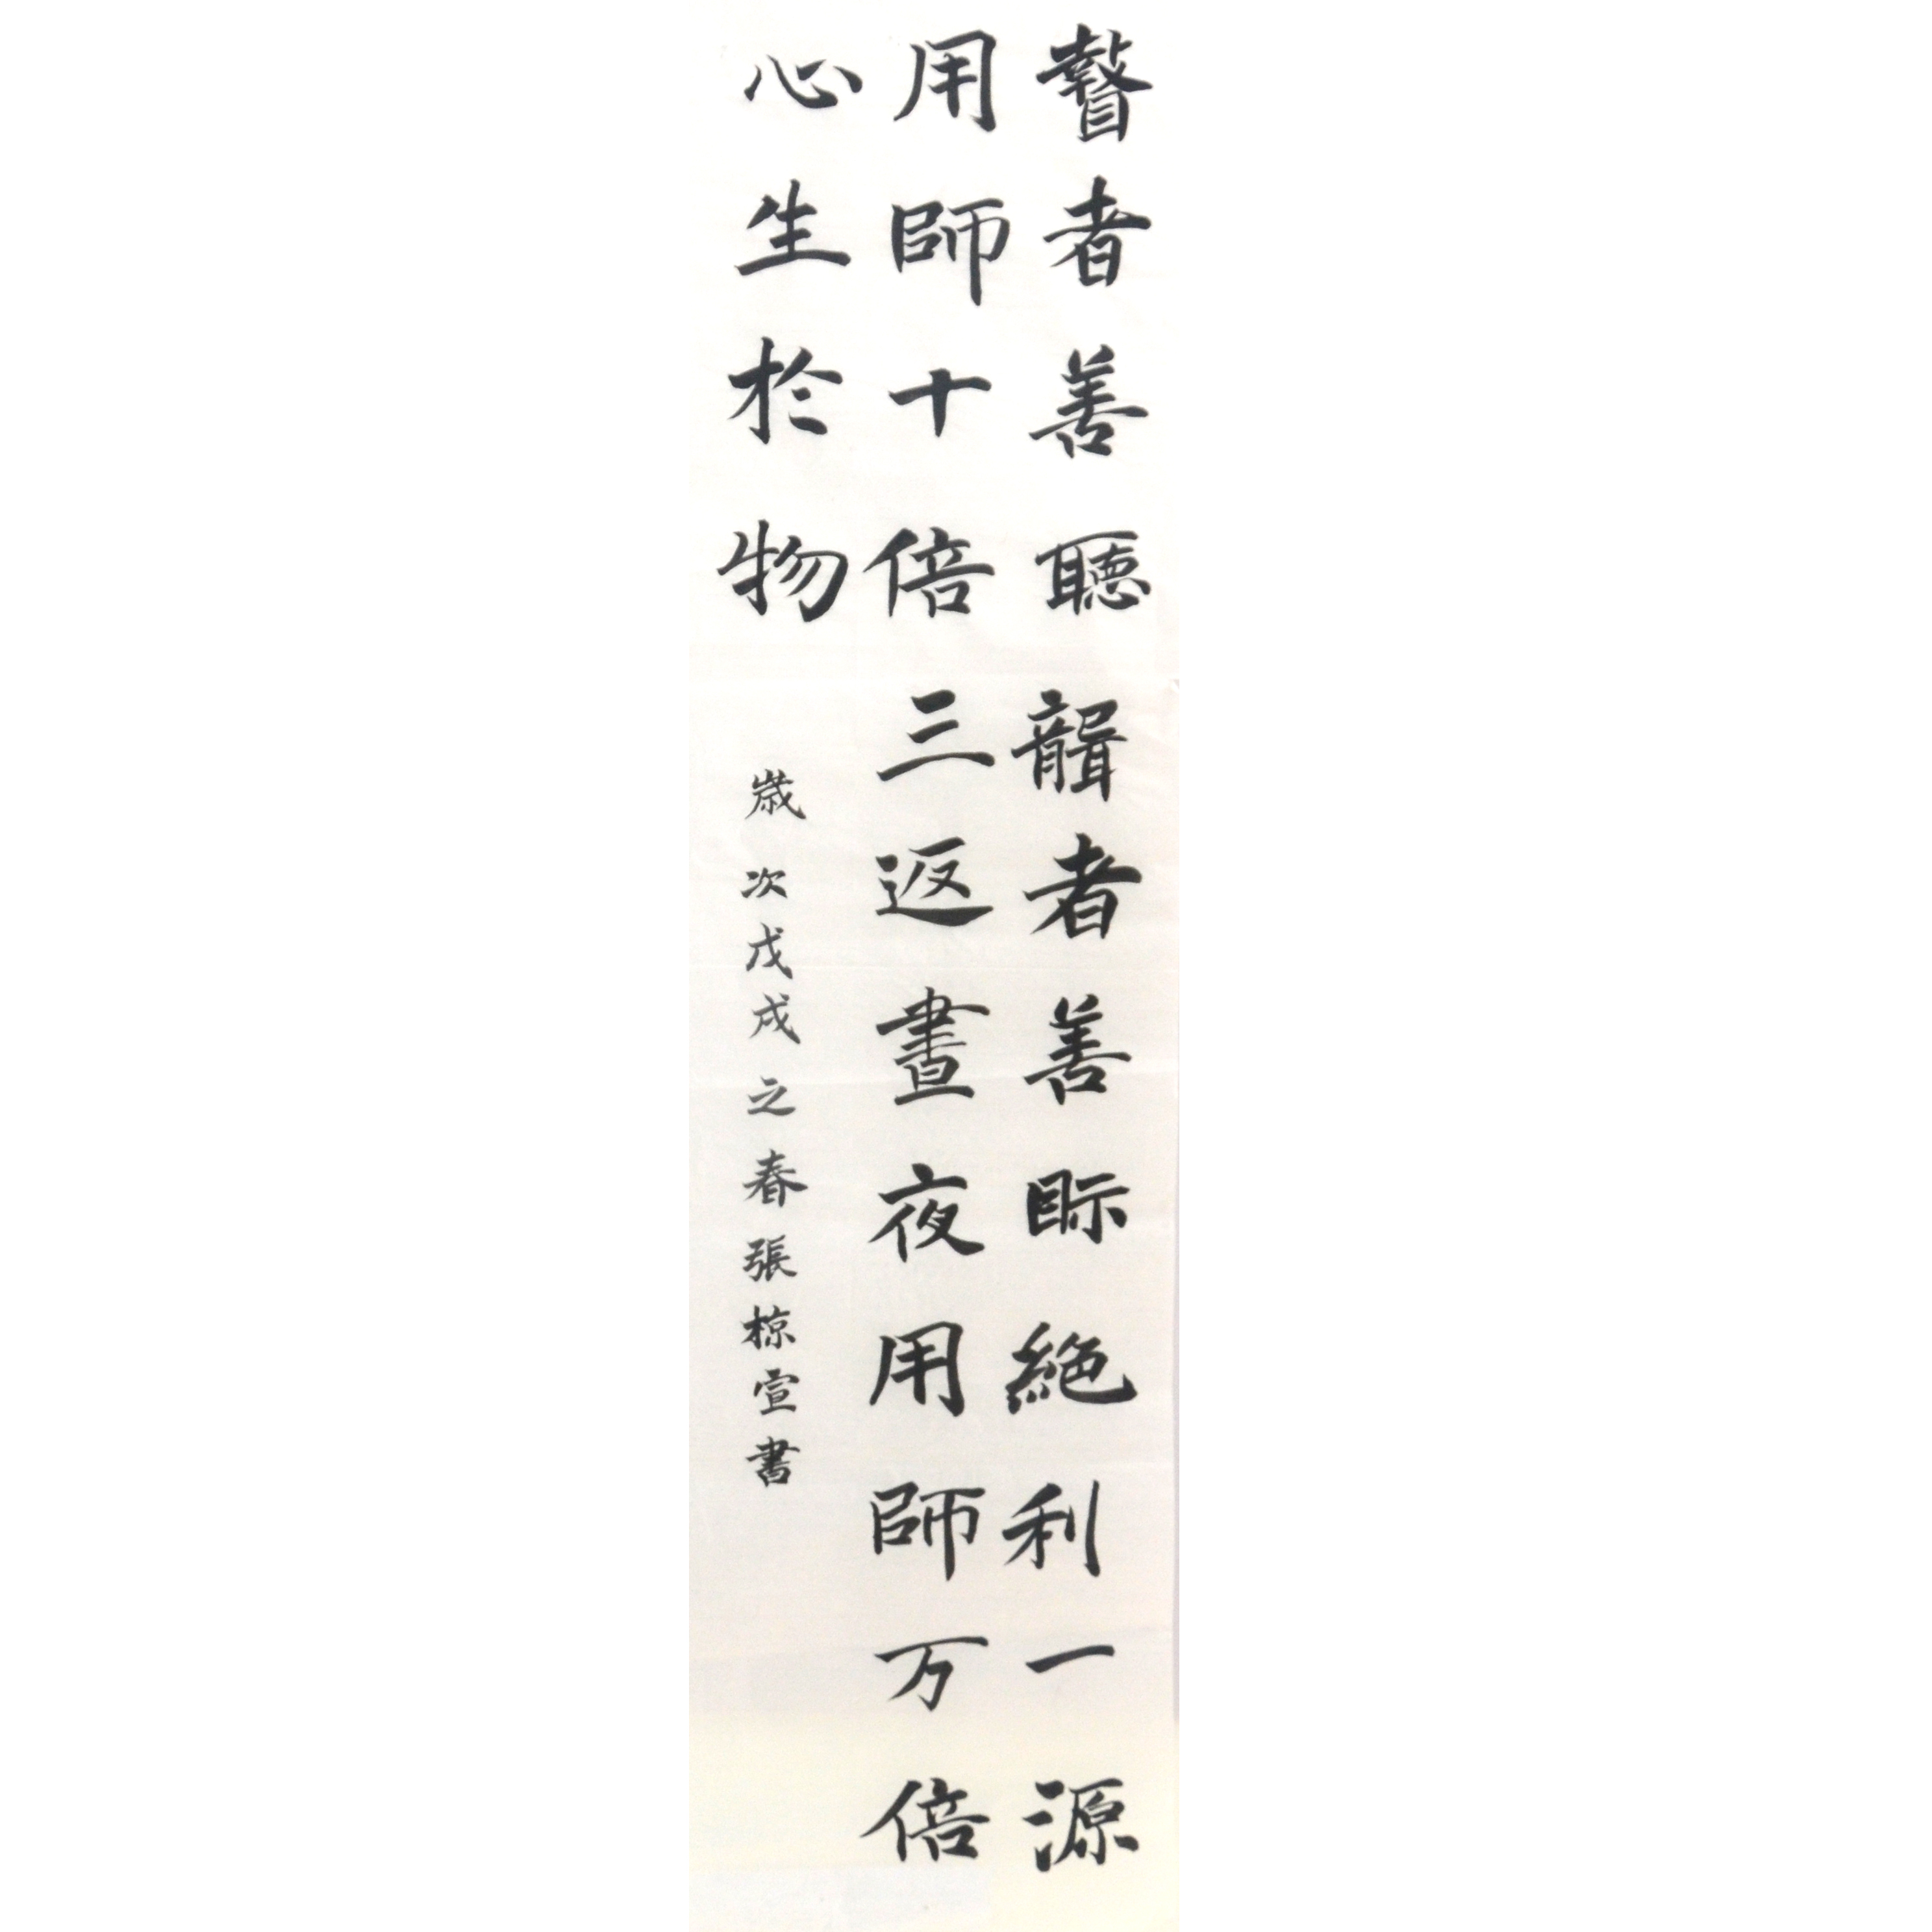 瞽者善聽聾者善眎絶利一源
用師十倍三返晝夜用師万倍
心生於物
歳次戊戌之春張椋宣書